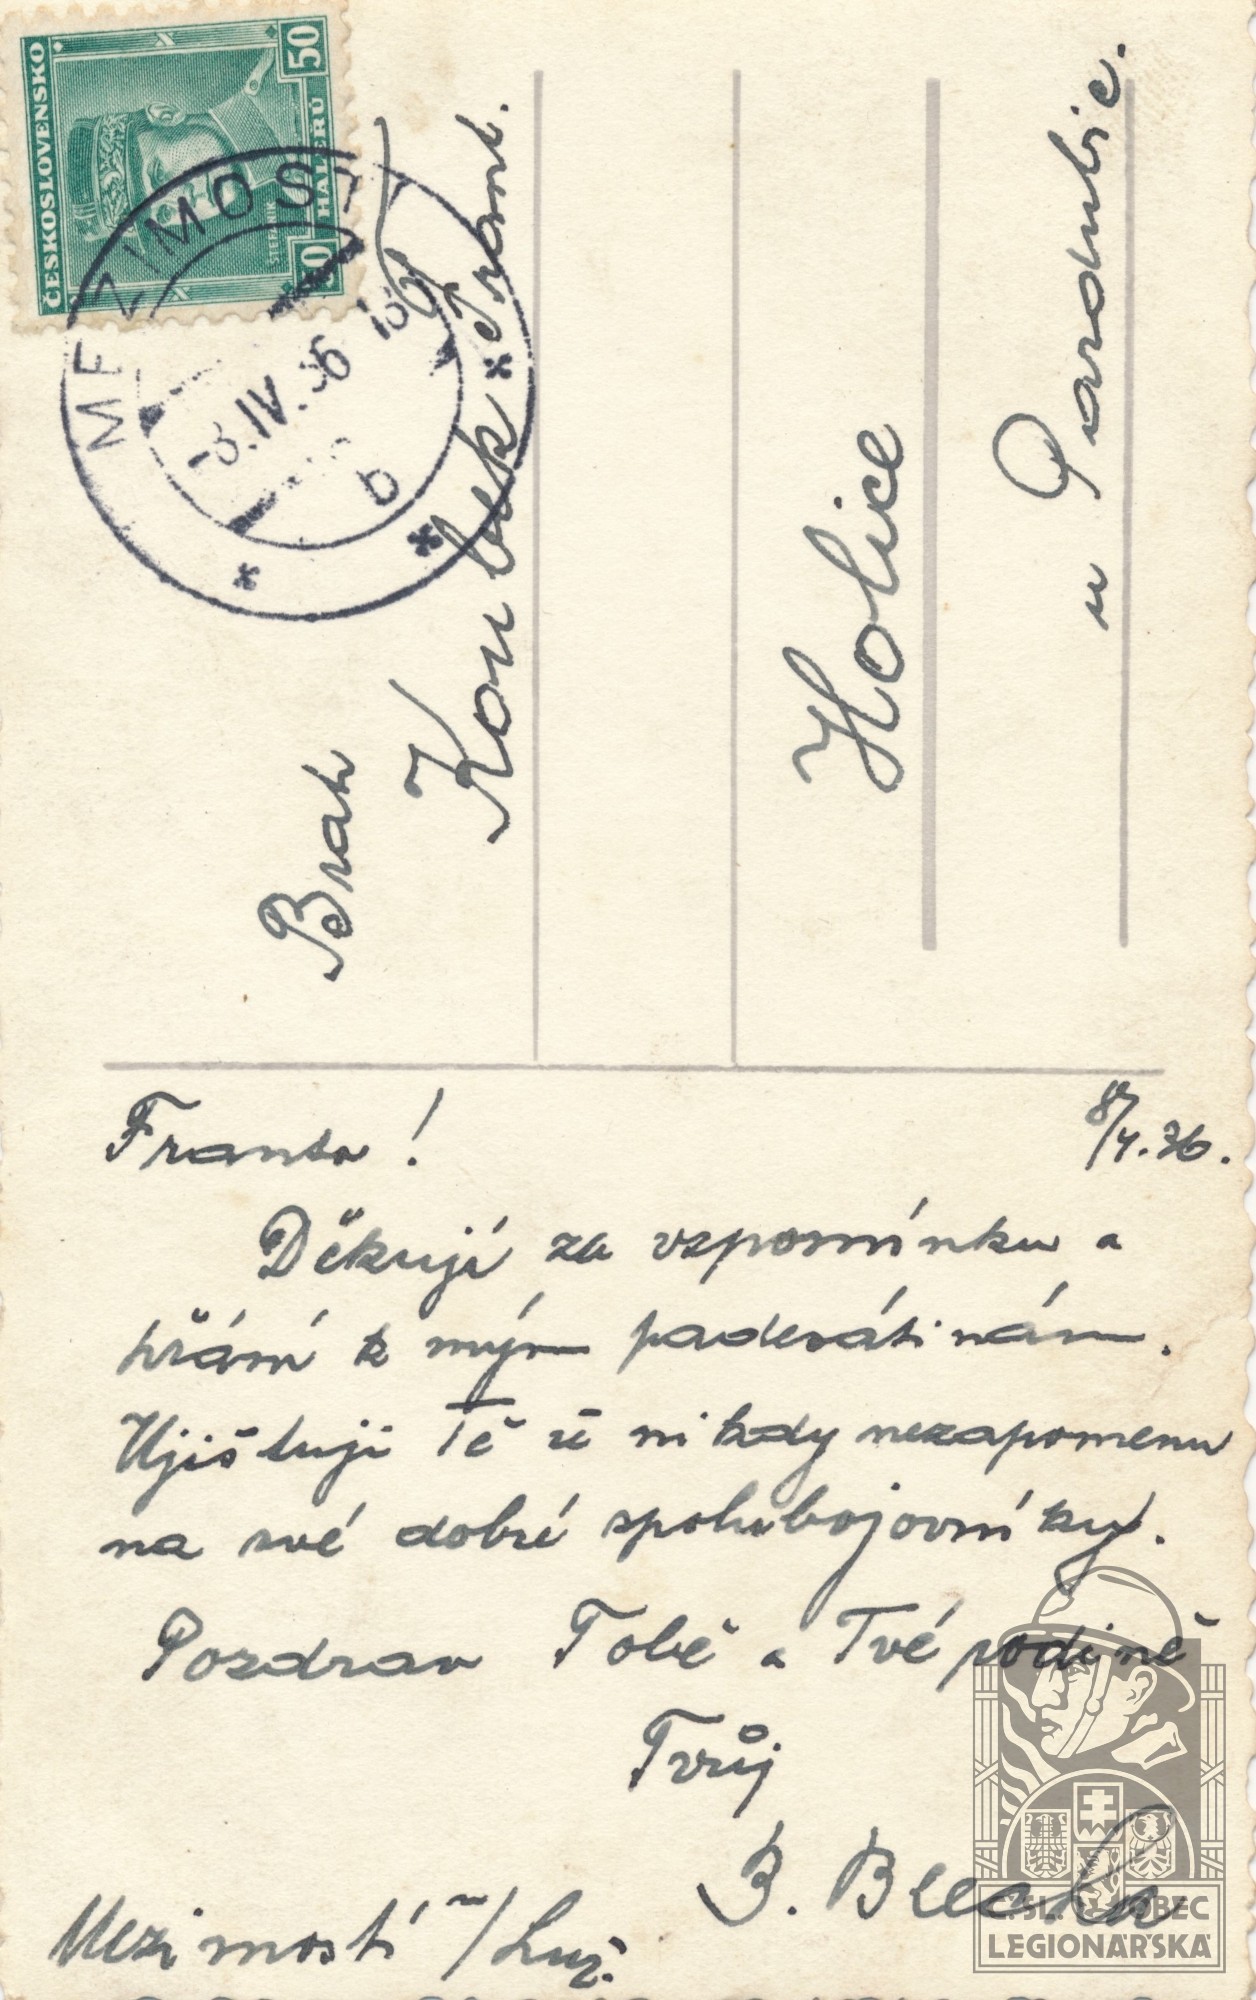 ČESKOSLOVENSKO
50
50
HALÉŘŮ
ŠTEFÁNIK
MEZIMOSTÍ
-8.IV.36 18
b
Bratr
Koubek Frant.
Holice
u Pardubic.
8/4.36.
Franto!
Děkuji za vzpomínku a
přání k mým padesátinám.
Ujišťuji Tě že nikdy nezapomenu
na své dobré spolubojovníky.
Pozdrav Tobě a Tvé rodině
Tvůj
Mezimostí n/Luž.
Č.SL. OBEC
LEGIONÁŘSKÁ